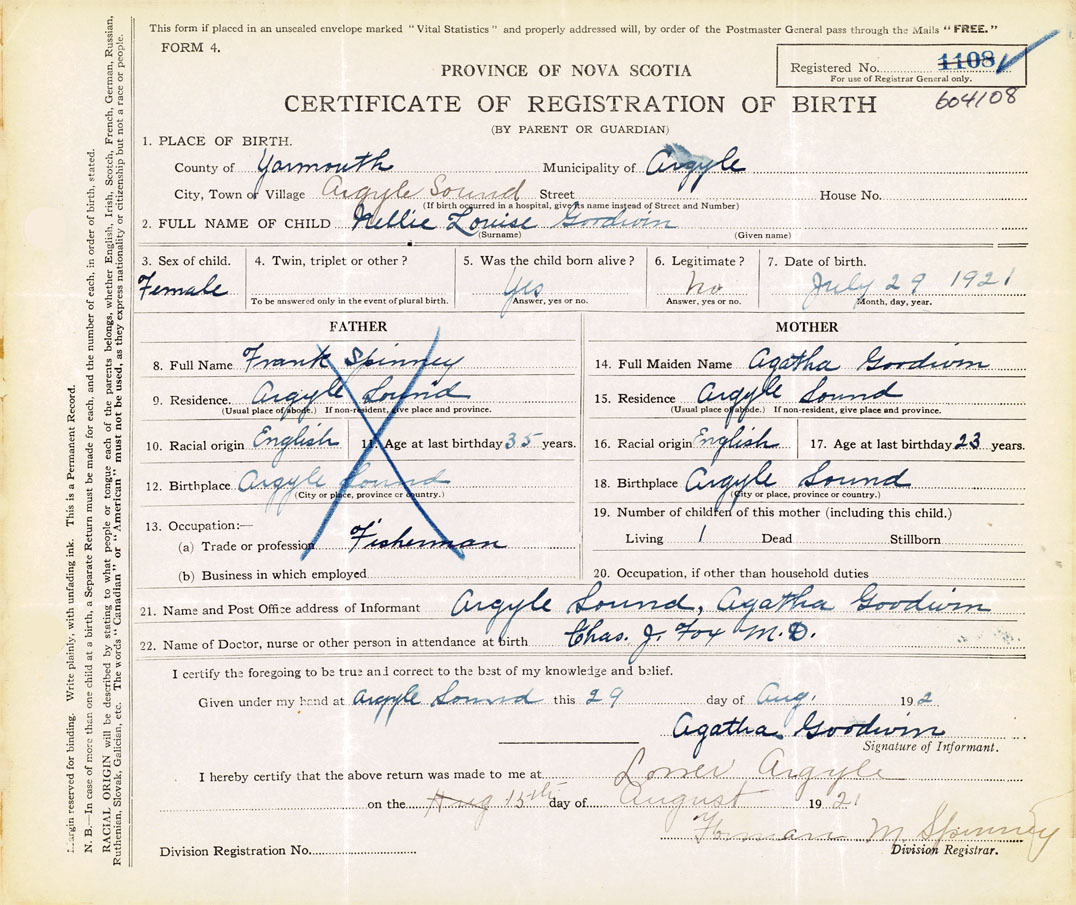 This form if placed in an unsealed envelope marked "Vital Statistics" and properly addressed will, by order of the Postmaster General pass through the Mails "FREE."
FORM 4.
Registered No. 1108
For use of Registrar General only.
604108
PROVINCE OF NOVA SCOTIA
CERTIFICATE OF REGISTRATION OF BIRTH
(BY PARENT OR GUARDIAN)
1. PLACE OF BIRTH.
County of Yarmouth Municipality of Argyle
City, Town or Village Argyle Sound Street House No.
(If birth occurred in a hospital, give its name instead of Street and Number)
2. FULL NAME OF CHILD Nellie Louise Goodwin
(Surname) (Given name)
3. Sex of child. 4. Twin, triplet or other? 5. Was the child born alive? 6. Legitimate? 7. Date of birth.
Female Yes No July 29 1921
To be answered only in the event of plural birth. Answer, yes or no. Answer, yes or no. Month, day, year.
FATHER
8. Full Name Frank Spinney
9. Residence. Argyle Sound
(Usual place of abode.) If non-resident, give place and province.
10. Racial origin English 11. Age at last birthday 35 years.
12. Birthplace Argyle Sound
(City or place, province or country.)
13. Occupation:—
(a) Trade or profession Fisherman
(b) Business in which employed
MOTHER
14. Full Maiden Name Agatha Goodwin
15. Residence Argyle Sound
(Usual place of abode.) If non-resident, give place and province.
16. Racial origin English 17. Age at last birthday 23 years.
18. Birthplace Argyle Sound
(City or place, province or country.)
19. Number of children of this mother (including this child.)
Living 1 Dead Stillborn
20. Occupation, if other than household duties
21. Name and Post Office address of Informant Argyle Sound, Agatha Goodwin
22. Name of Doctor, nurse or other person in attendance at birth Chas. J. Fox M.D.
I certify the foregoing to be true and correct to the best of my knowledge and belief.
Given under my hand at Argyle Sound this 29 day of Aug. 192
Agatha Goodwin
Signature of Informant.
I hereby certify that the above return was made to me at Lower Argyle
on the Aug 15th day of August 1921
M Spinney
Division Registrar.
Division Registration No.
Margin reserved for binding. Write plainly, with unfading ink. This is a Permanent Record.
N. B.—In case of more than one child at a birth, a Separate Return must be made for each, and the number of each, in order of birth, stated.
RACIAL ORIGIN will be described by stating to what people or tongue each of the parents belongs, whether English, Irish, Scotch, French, German, Russian,
Ruthenian, Slovak, Galician, etc. The words "Canadian" or "American" must not be used, as they express nationality or citizenship but not a race or people.